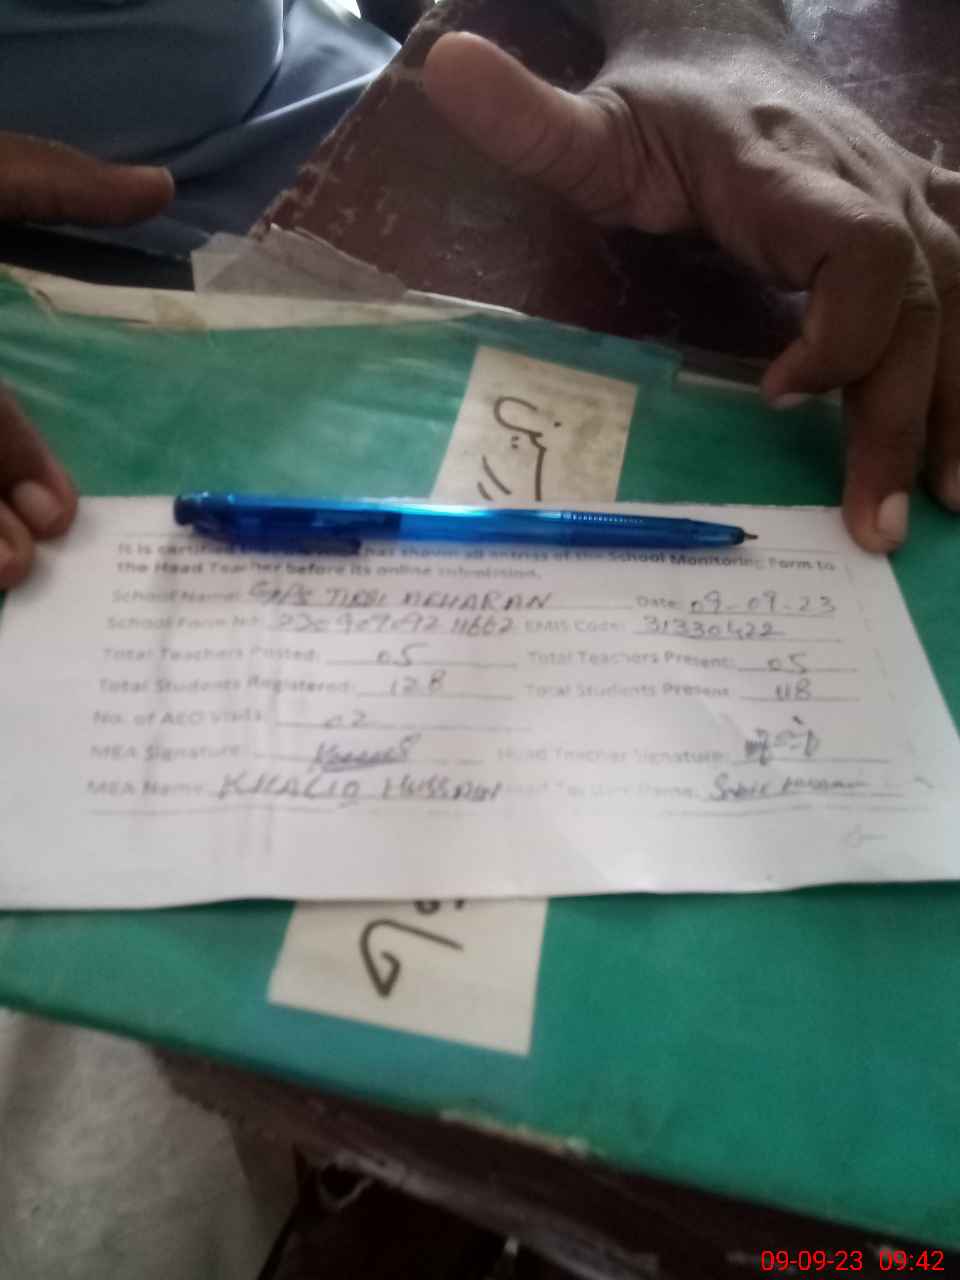 It is certified has shown all entries of the School Monitoring Form to
the Head Teacher before its online submission.
School Name: GPS TIBBI MEHARAN Date: 09-09-23
School Form No: EMIS Code: 31330422
Total Teachers Posted: 05 Total Teachers Present: 05
Total Students Registered: 128 Total Students Present: 118
No. of AEO Visits: 02
MEA Signature: Head Teacher Signature:
MEA Name: KHALID HUSSAIN Head Teacher Name:
09-09-23 09:42